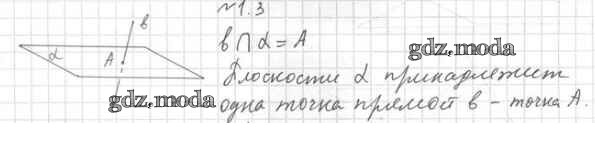 №1.3
b
b ∩ α = A
gdz.moda
α
A
Плоскости α принадлежит
gdz.moda
одна точка прямой b – точка A.